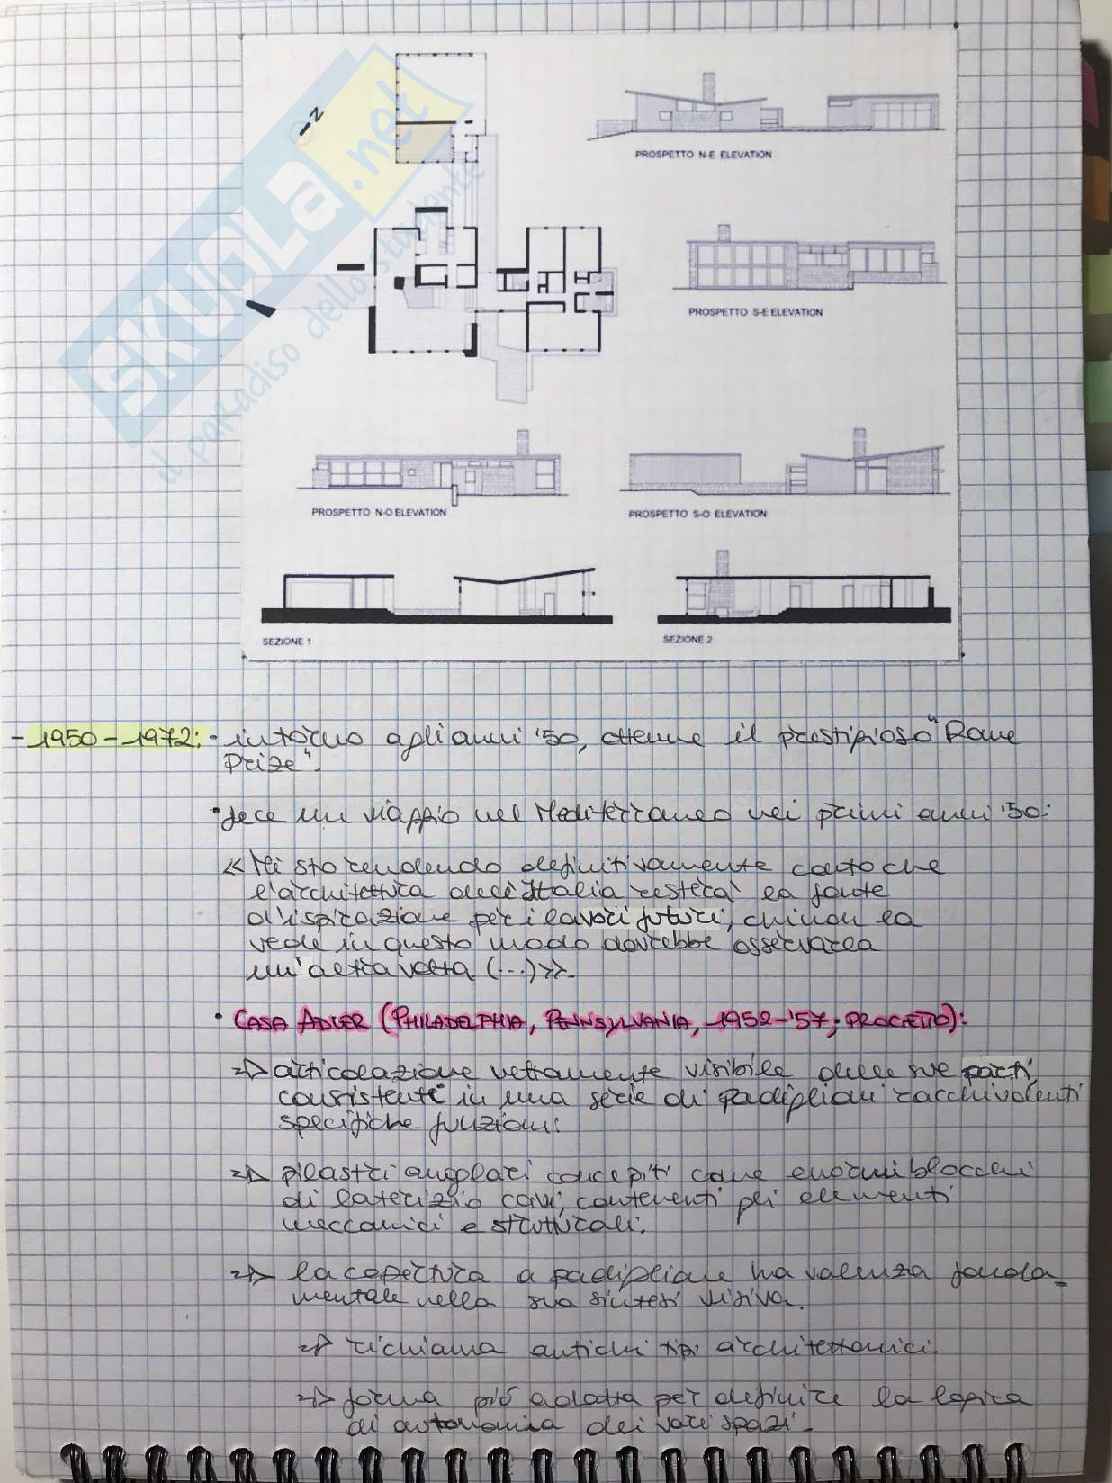 N
SKUOLA.net
il paradiso dello studente
PROSPETTO N-E ELEVATION
PROSPETTO S-E ELEVATION
PROSPETTO N-O ELEVATION
PROSPETTO S-O ELEVATION
SEZIONE 1
SEZIONE 2
- 1950-1972: • intorno agli anni '50, ottenne il prestigioso "Rome
Prize".
• fece un viaggio nel Mediterraneo nei primi anni '50:
« Mi sto rendendo definitivamente conto che
l'architettura dell'Italia resterà la fonte
d'ispirazione per i lavori futuri, chi non la
vede in questo modo dovrebbe osservarla
un'altra volta (...)».
• CASA ADLER (PHILADELPHIA, PENNSYLVANIA, 1952-'57; PROGETTO):
=> articolazione veramente visibile delle sue parti,
consistente in una serie di padiglioni racchiudenti
specifiche funzioni.
=> pilastri angolari concepiti come enormi blocchi
di laterizio cavi, contenenti gli elementi
meccanici e strutturali.
=> la copertura a padiglione ha valenza fonda-
mentale nella sua sintesi visiva.
=> richiama antichi tipi architettonici.
=> forma più adatta per definire la logica
di autonomia dei vari spazi.